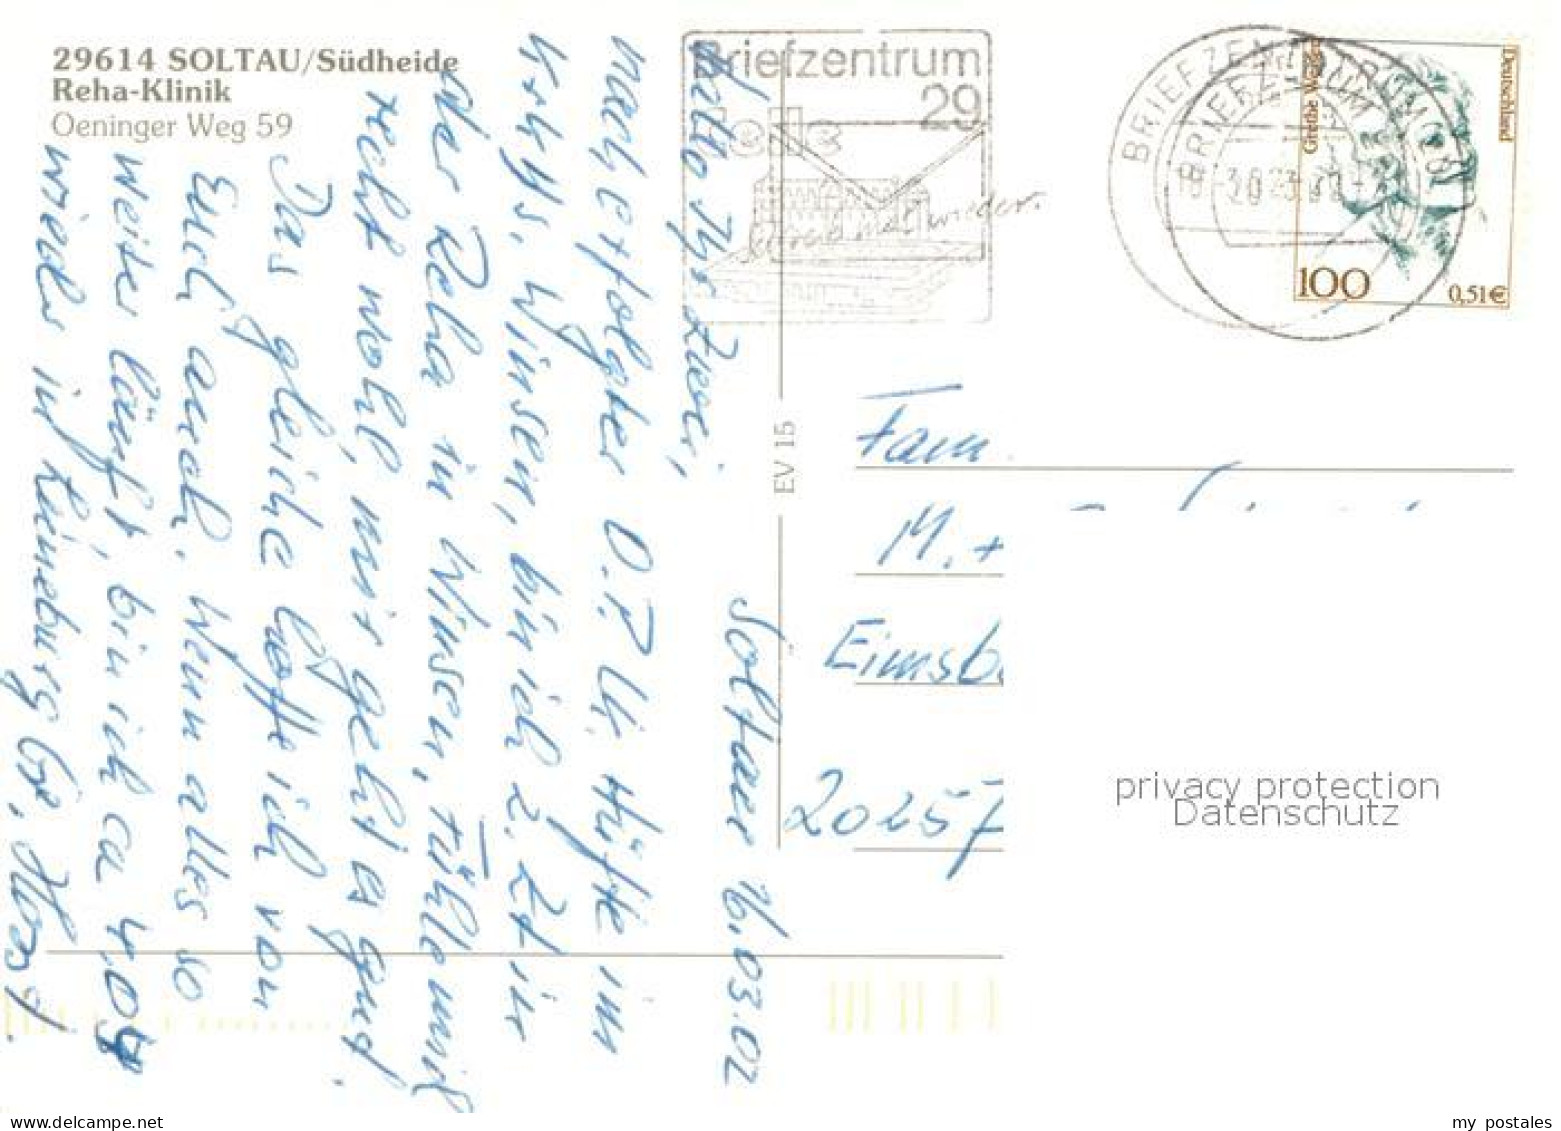 29614 SOLTAU/Südheide
Reha-Klinik
Oeninger Weg 59
Soltau 16.03.02
Hallo Ihr Zwei,
nach erfolgter O.P. li. Hüfte im
Krhs. Winsen, bin ich z. Zt in
der Reha in Winsen, fühle mich
recht wohl, mir geht es gut.
Das gleiche hoffe ich von
Euch auch. Wenn alles so
weiter läuft, bin ich ca 4.04
wieder in Lüneburg Gr. Horst.
EV 15
Briefzentrum
29
schreib mal wieder.
BRIEFZENTRUM
BRIEFZENTRUM
Deutschland
Grethe Weiser
100
0,51€
Fam.
M. +
Eimsb
20257
privacy protection
Datenschutz
my postales